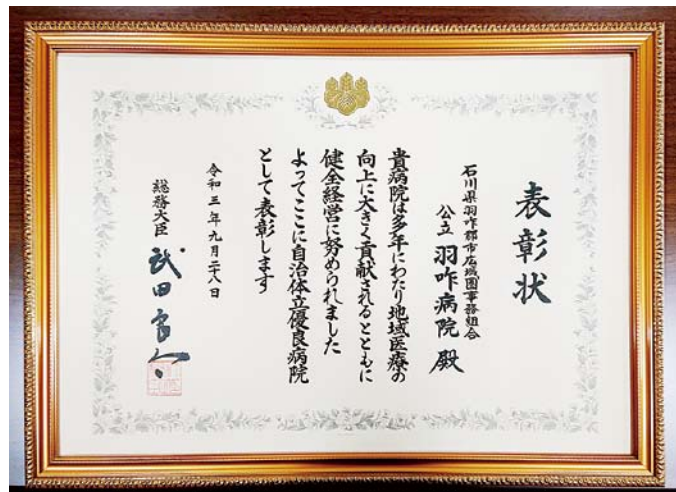 表彰状
石川県羽咋郡市広域圏事務組合
公立 羽咋病院 殿
貴病院は多年にわたり地域医療の
向上に大きく貢献されるとともに
健全経営に努められました
よってここに自治体立優良病院
として表彰します
令和三年九月二十八日
総務大臣 武田良太